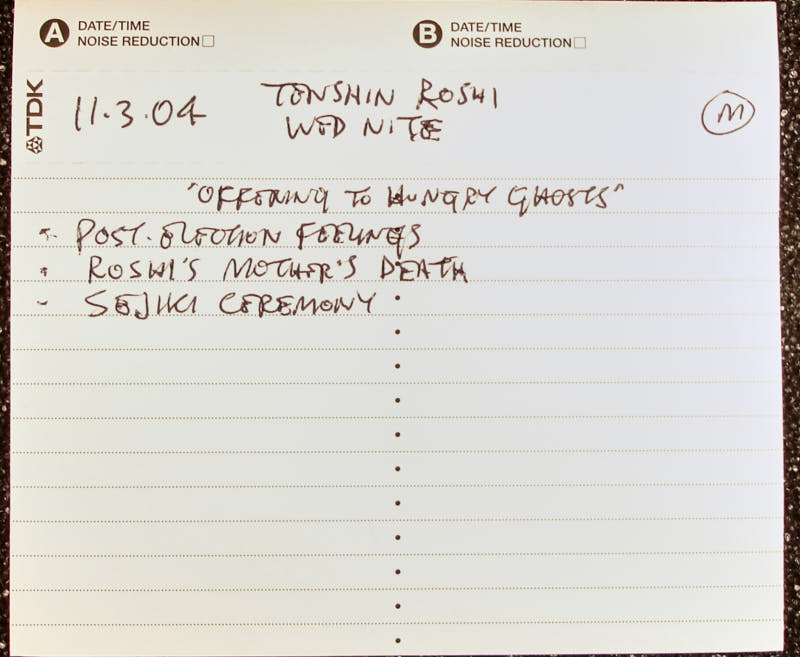 A DATE/TIME
NOISE REDUCTION
B DATE/TIME
NOISE REDUCTION
TDK
11.3.04
TENSHIN ROSHI
WED NITE
M
"OFFERING TO HUNGRY GHOSTS"
- POST-ELECTION FEELINGS
- ROSHI'S MOTHER'S DEATH
- SEJIKI CEREMONY